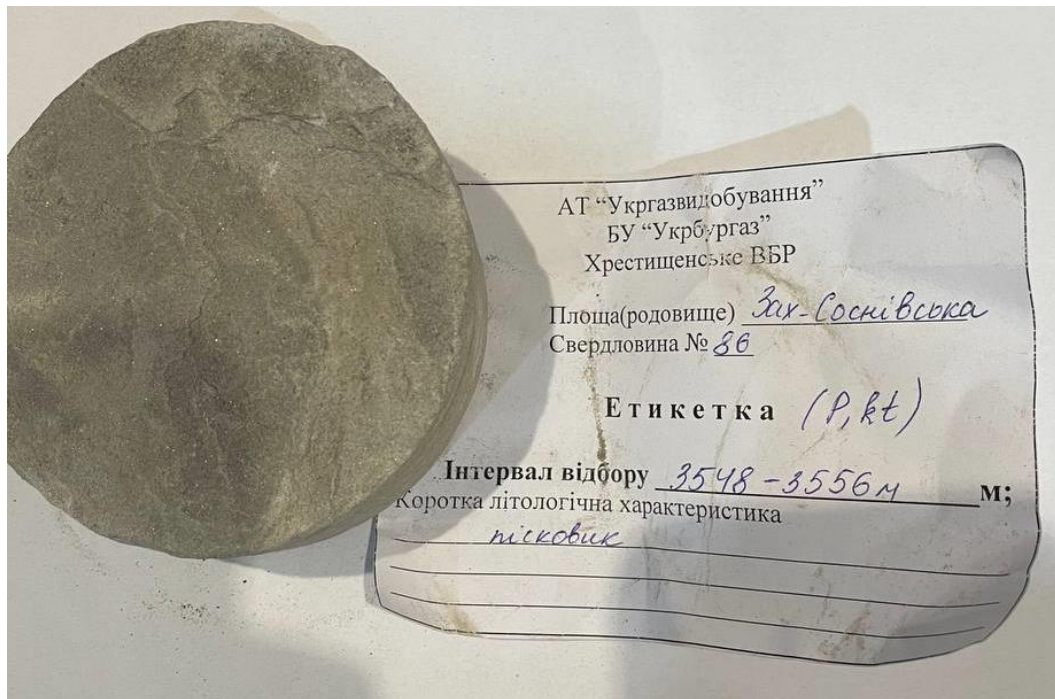 АТ “Укргазвидобування”
БУ “Укрбургаз”
Хрестищенське ВБР
Площа(родовище) Зах-Соснівська
Свердловина № 86
Етикетка (P, kt)
Інтервал відбору 3548-3556м м;
Коротка літологічна характеристика
пісковик